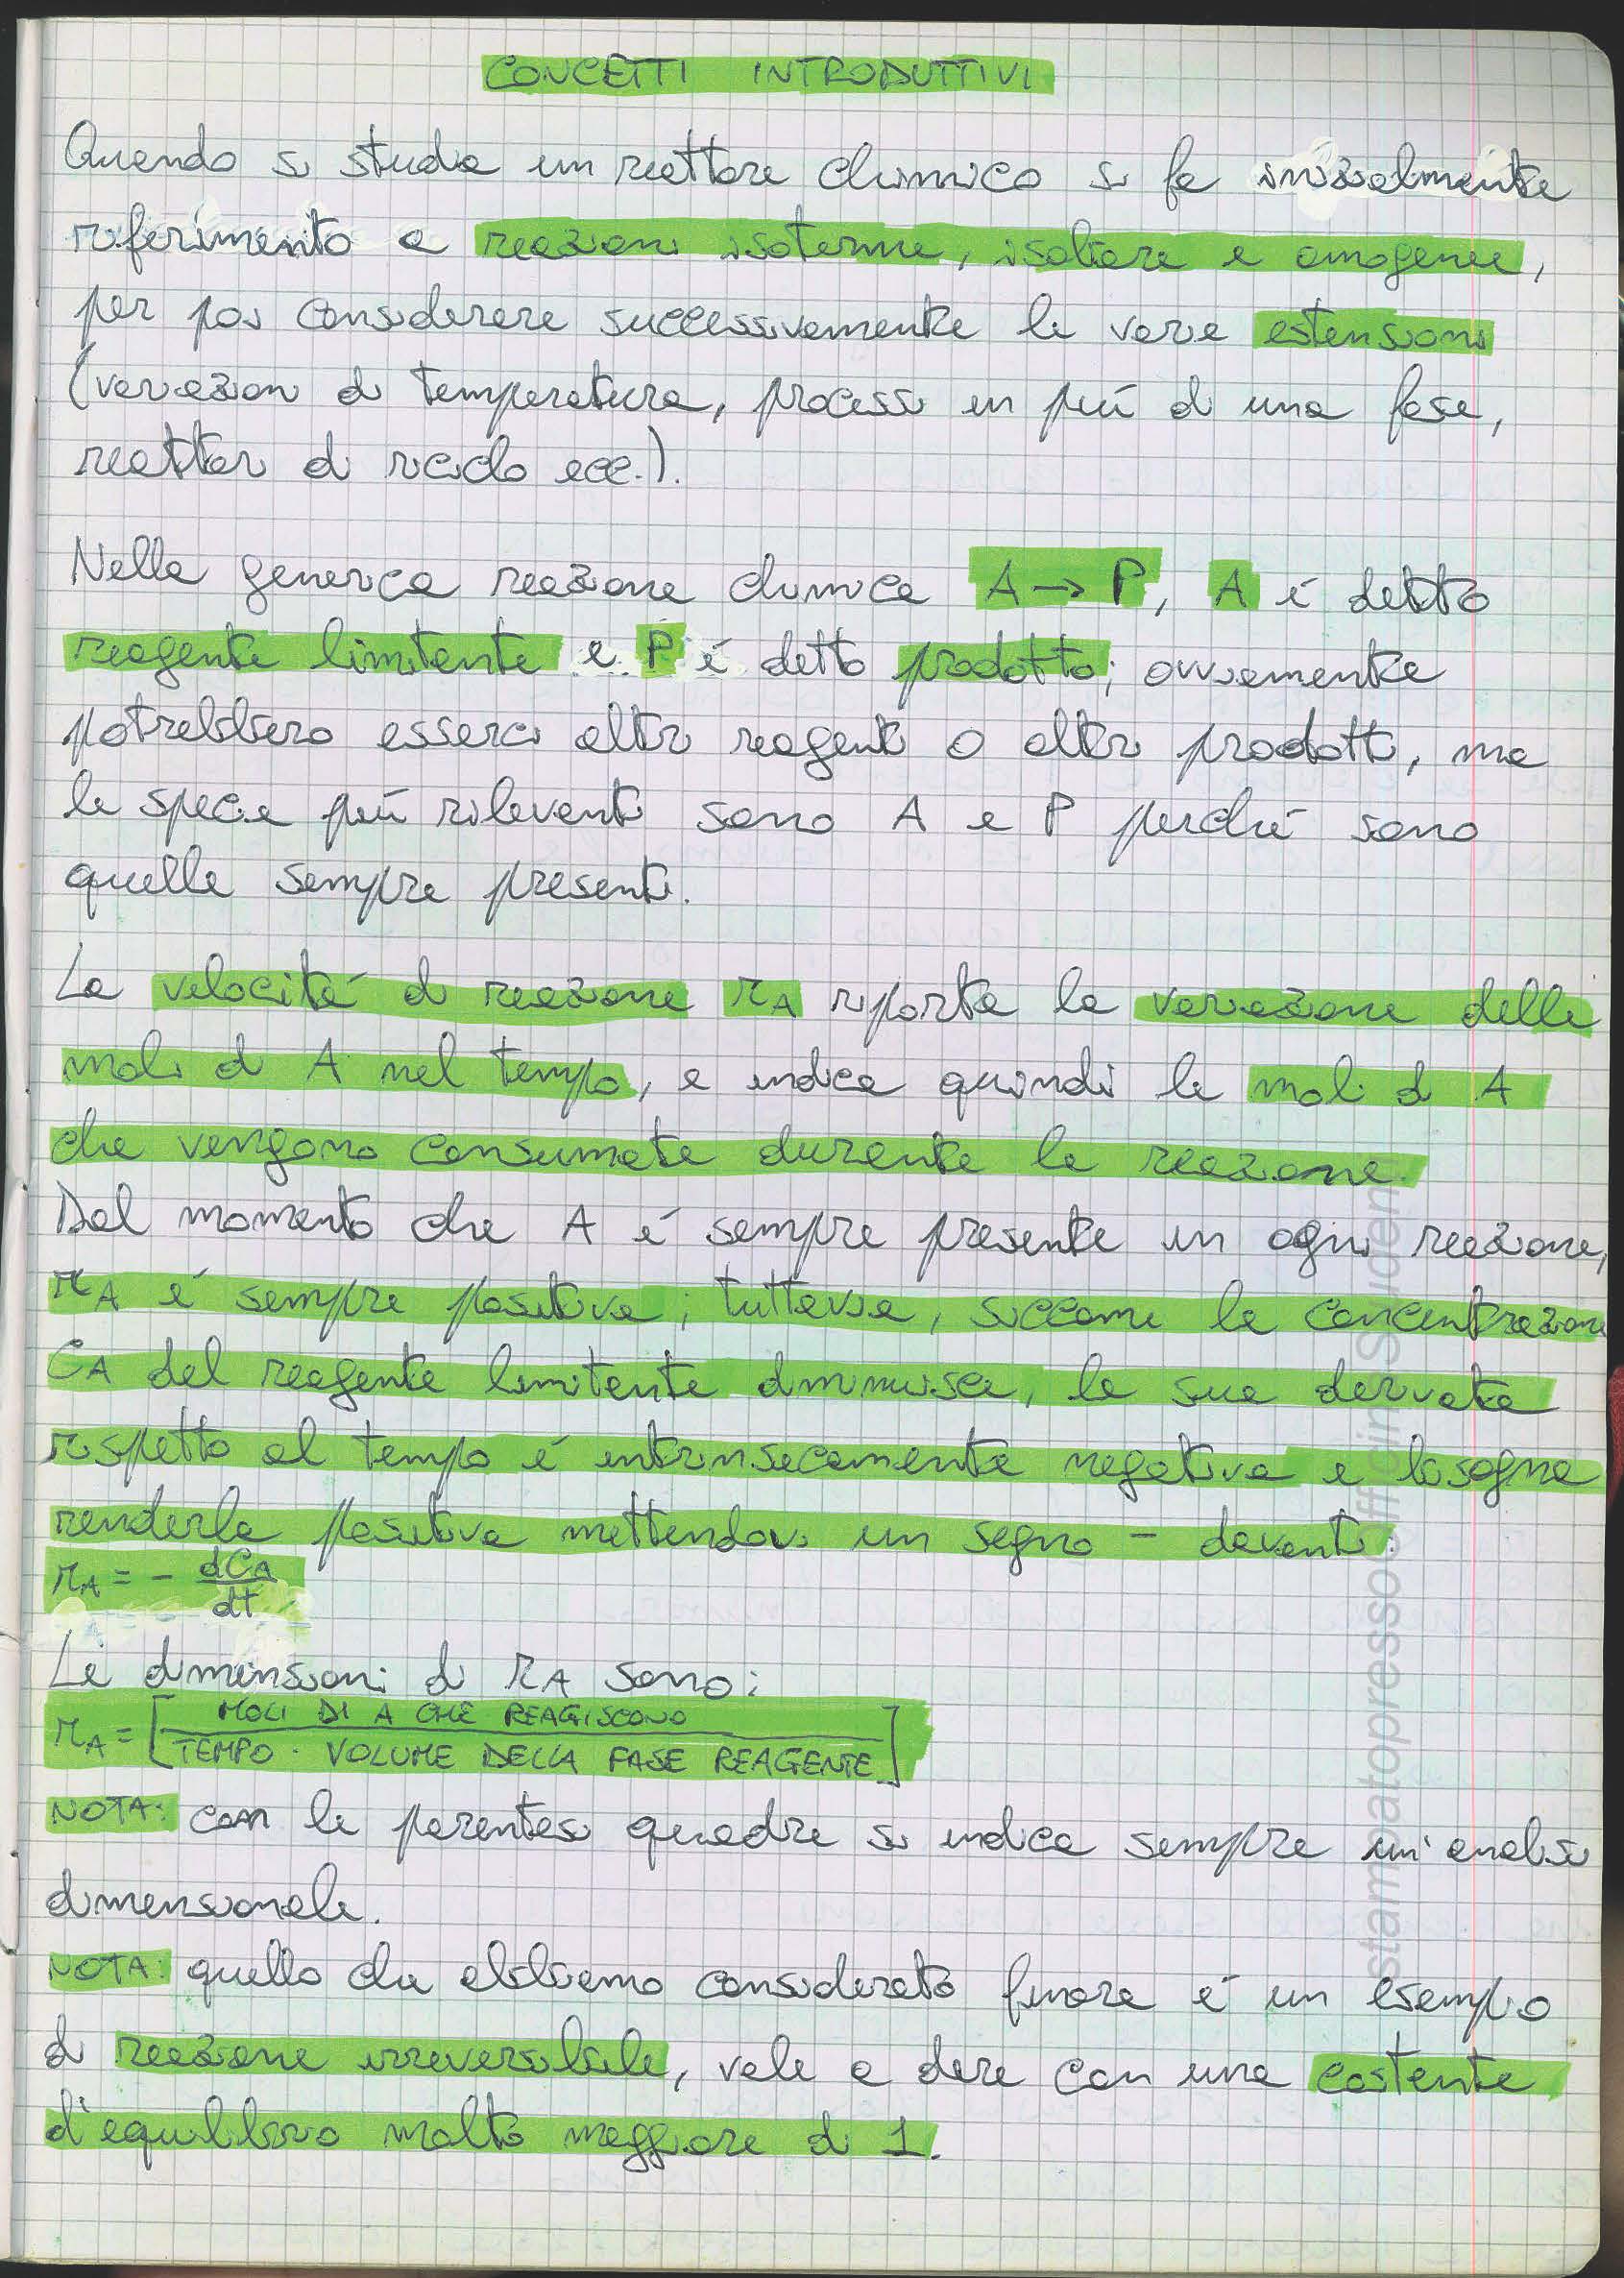 CONCETTI INTRODUTTIVI
Quando si studia un reattore chimico si fa inizialmente
riferimento a reazioni isoterme, isobare e omogenee,
per poi considerare successivamente le varie estensioni
(variazioni di temperatura, processi in più di una fase,
reattori di riciclo ecc.).
Nella generica reazione chimica A → P, A è detto
reagente limitante e P è detto prodotto; ovviamente
potrebbero esserci altri reagenti o altri prodotti, ma
le specie più rilevanti sono A e P perché sono
quelle sempre presenti.
La velocità di reazione rA riporta la variazione delle
moli di A nel tempo, e indica quindi le moli di A
che vengono consumate durante la reazione.
Dal momento che A è sempre presente in ogni reazione,
rA è sempre positiva; tuttavia, siccome la concentrazione
CA del reagente limitante diminuisce, la sua derivata
rispetto al tempo è intrinsecamente negativa e bisogna
renderla positiva mettendovi un segno - davanti:
rA = - dCA/dt
Le dimensioni di rA sono:
rA = [MOLI DI A CHE REAGISCONO / TEMPO · VOLUME DELLA FASE REAGENTE]
NOTA: con le parentesi quadre si indica sempre un'analisi
dimensionale.
NOTA: quello che abbiamo considerato finora è un esempio
di reazione irreversibile, vale a dire con una costante
d'equilibrio molto maggiore di 1.